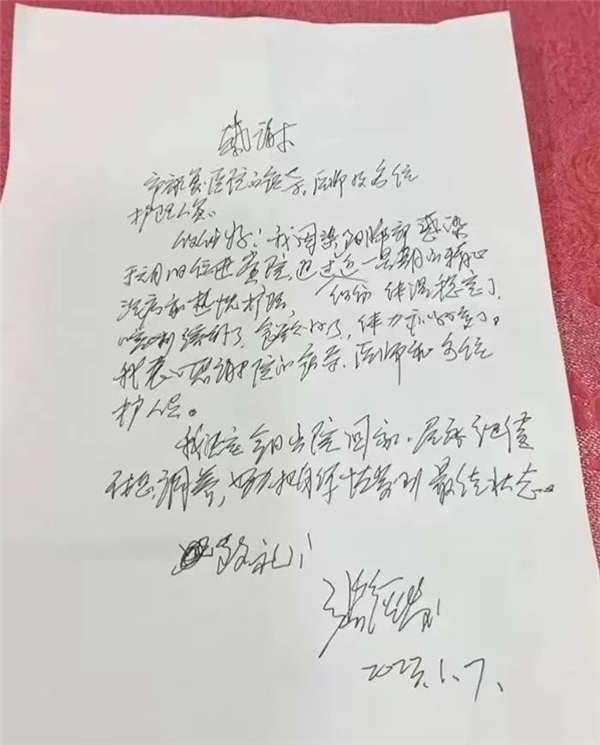 感谢
医院的领导、医师及各位
护理人员。
你们好！我因染阳肺部感染
于元月1日住进贵院，通过近一星期的精心
治疗和热忱护理， 你们 体温稳定了
咳嗽减轻了，食欲好了，体力也好了。
我衷心感谢医院的领导、医师和各位
护人员。
我决定今日出院回家，居家继续
调养，努力把身体恢复到最佳状态。
致礼！
2023.1.7.